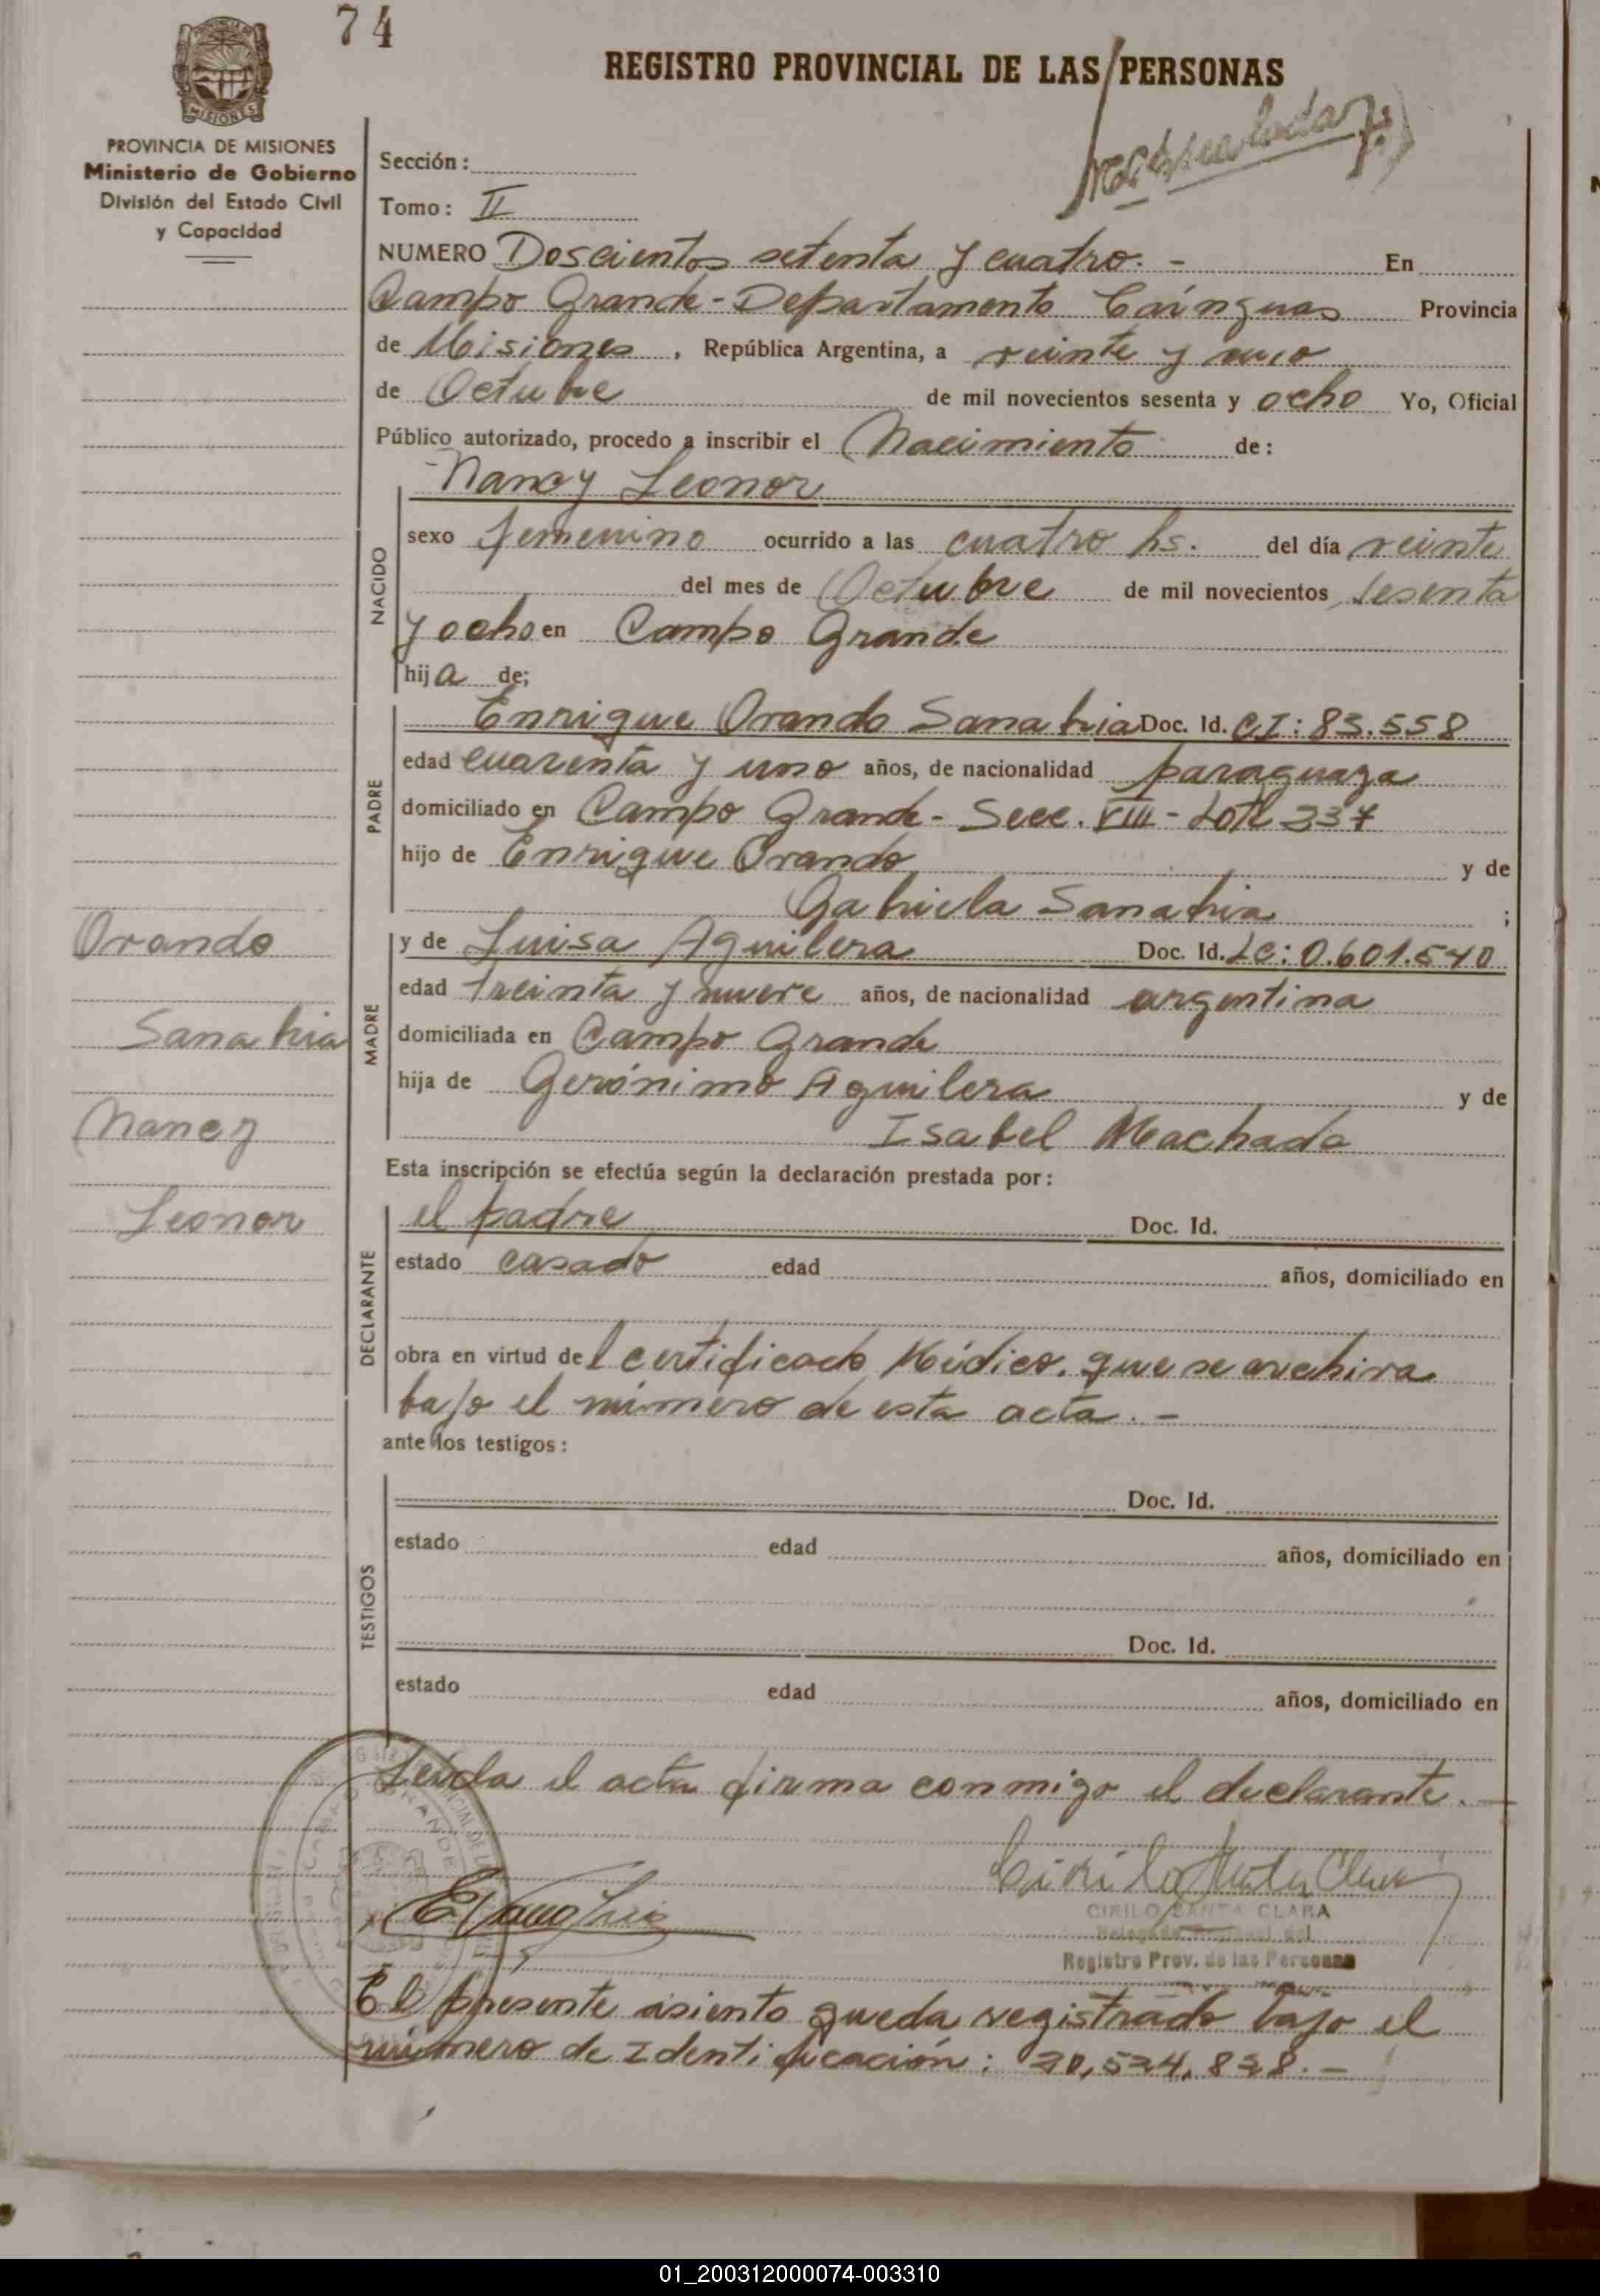 74
REGISTRO PROVINCIAL DE LAS PERSONAS
PROVINCIA DE MISIONES
Ministerio de Gobierno
División del Estado Civil
y Capacidad
MISIONES
Sección:
Tomo: II
NUMERO Doscientos setenta y cuatro. - En
Campo Grande - Departamento Cainguas Provincia
de Misiones, República Argentina, a veinte y uno
de Octubre de mil novecientos sesenta y ocho Yo, Oficial
Público autorizado, procedo a inscribir el Nacimiento de:
Nancy Leonor
NACIDO
sexo femenino ocurrido a las cuatro hs. del día veinte
del mes de Octubre de mil novecientos sesenta
y ocho en Campo Grande
hija de;
PADRE
Enrique Orando Sanabria Doc. Id. CI: 83.558
edad cuarenta y uno años, de nacionalidad paraguaya
domiciliado en Campo Grande - Secc. VIII - Lote 337
hijo de Enrique Orando y de
Gabriela Sanabria ;
MADRE
y de Luisa Aguilera Doc. Id. LC: 0.601.540
edad treinta y nueve años, de nacionalidad argentina
domiciliada en Campo Grande
hija de Gerónimo Aguilera y de
Isabel Machado
Orando
Sanabria
Nancy
Leonor
Esta inscripción se efectúa según la declaración prestada por:
DECLARANTE
el padre Doc. Id.
estado casado edad años, domiciliado en
obra en virtud del certificado Médico. que se archiva
bajo el número de esta acta. -
ante los testigos:
TESTIGOS
Doc. Id.
estado edad años, domiciliado en
Doc. Id.
estado edad años, domiciliado en
Leída el acta firma conmigo el declarante. -
CIRILO SANTA CLARA
Registro Prov. de las Personas
El presente asiento queda registrado bajo el
número de Identificación: 20,534,838. -
01_200312000074-003310